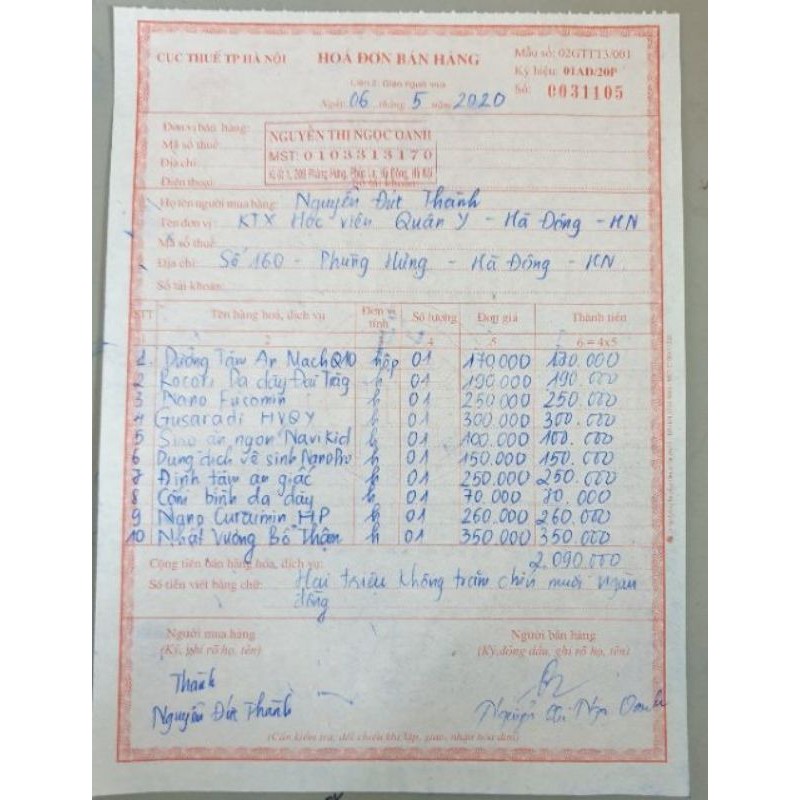 CỤC THUẾ TP HÀ NỘI
HOÁ ĐƠN BÁN HÀNG
Mẫu số: 02GTTT3/001
Ký hiệu: 01AD/20P
Liên 2: Giao người mua
Số: 0031105
Ngày: 06 tháng 5 năm 2020
Đơn vị bán hàng: NGUYỄN THỊ NGỌC OANH
Mã số thuế: MST: 0103313170
Địa chỉ: Ki ốt 1, 209 Phùng Hưng, Phúc La, Hà Đông, Hà Nội
Điện thoại: Số tài khoản:
Họ tên người mua hàng: Nguyễn Đức Thành
Tên đơn vị: KTX Học viện Quân Y - Hà Đông - HN
Mã số thuế:
Địa chỉ: Số 160 - Phùng Hưng - Hà Đông - HN
Số tài khoản:
STT Tên hàng hoá, dịch vụ Đơn vị tính Số lượng Đơn giá Thành tiền
1 2 4 5 6 = 4x5
1 Dưỡng Tâm An Mạch Q10 hộp 01 170.000 170.000
2 Dạ dày Đại Tràng h 01 190.000 190.000
3 Nano Fucomin h 01 250.000 250.000
4 Gusaradi HVQY h 01 300.000 300.000
5 Siro ăn ngon NaviKid h 01 100.000 100.000
6 Dung dịch vệ sinh NanoPro h 01 150.000 150.000
7 Định tâm an giấc h 01 250.000 250.000
8 Cốm bình dạ dày h 01 70.000 70.000
9 Nano Curcumin HP h 01 260.000 260.000
10 Nhất Vương Bổ Thận h 01 350.000 350.000
Cộng tiền bán hàng hóa, dịch vụ: 2.090.000
Số tiền viết bằng chữ: Hai triệu không trăm chín mươi ngàn
đồng
Người mua hàng Người bán hàng
(Ký, ghi rõ họ, tên) (Ký, đóng dấu, ghi rõ họ, tên)
Thành
Nguyễn Đức Thành Nguyễn Thị Ngọc Oanh
(Cần kiểm tra, đối chiếu khi lập, giao, nhận hóa đơn)